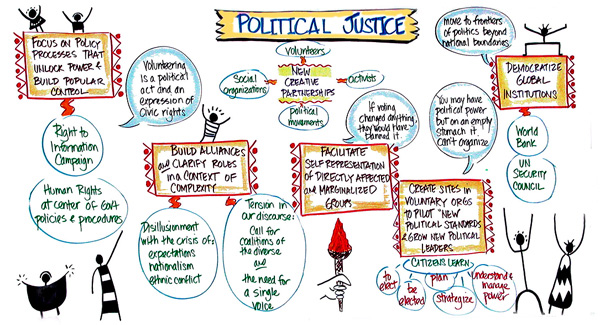 POLITICAL JUSTICE
FOCUS ON POLICY
PROCESSES THAT
UNLOCK POWER &
BUILD POPULAR
CONTROL
Right to
Information
Campaign
Human Rights
at center of Govt
policies & procedures
Volunteering
is a political
act and an
expression of
Civic rights
Volunteers
Social
organizations
NEW
CREATIVE
PARTNERSHIPS
activists
political
movements
BUILD ALLIANCES
and CLARIFY ROLES
in a CONTEXT OF
COMPLEXITY
Disillusionment
with the crisis of:
expectations
nationalism
ethnic conflict
Tension in
our discourse:
Call for
coalitions of
the diverse
and
the need for
a single
voice
If voting
changed anything,
they would have
banned it.
FACILITATE
SELF REPRESENTATION
OF DIRECTLY AFFECTED
and MARGINALIZED
GROUPS
You may have
political power
but on an empty
stomach it
can't organize
CREATE SITES in
VOLUNTARY ORGS
TO PILOT "NEW
POLITICAL STANDARDS
& GROW NEW POLITICAL
LEADERS
CITIZENS LEARN
to elect
to be elected
plan
strategize
understand &
manage
power
move to frontiers
of politics beyond
national boundaries.
DEMOCRATIZE
GLOBAL
INSTITUTIONS
World
Bank
UN
SECURITY
COUNCIL